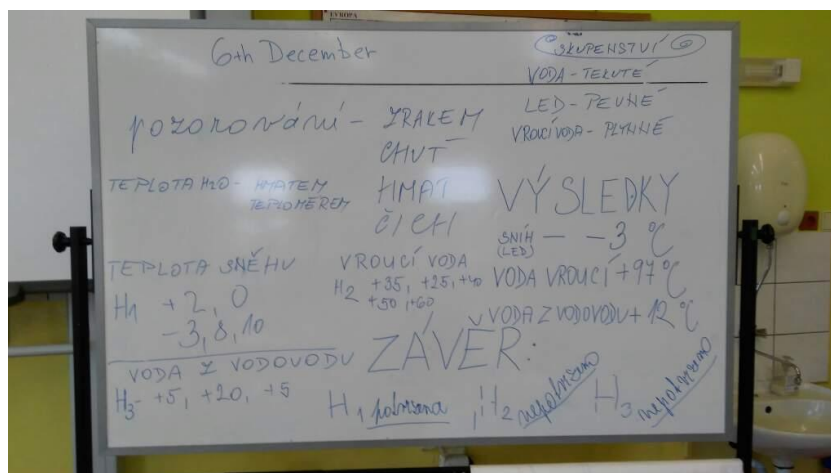 EVROPA
6th December
SKUPENSTVÍ
VODA - TEKUTÉ
LED - PEVNÉ
VROUCÍ VODA - PLYNNÉ
pozorování - ZRAKEM
CHUŤ
HMAT
ČICH
TEPLOTA H2O - HMATEM
TEPLOMĚREM
VÝSLEDKY
SNÍH — -3 °C
(LED)
VODA VROUCÍ +97°C
VODA Z VODOVODU + 12 °C
TEPLOTA SNĚHU
H1 +2, 0
-3, 8, 10
VROUCÍ VODA
H2 +35, +25, +40
+50, +60
VODA Z VODOVODU
H3 - +5, +20, +5
ZÁVĚR:
H1 potvrzena, H2 nepotvrzena H3 nepotvrzena